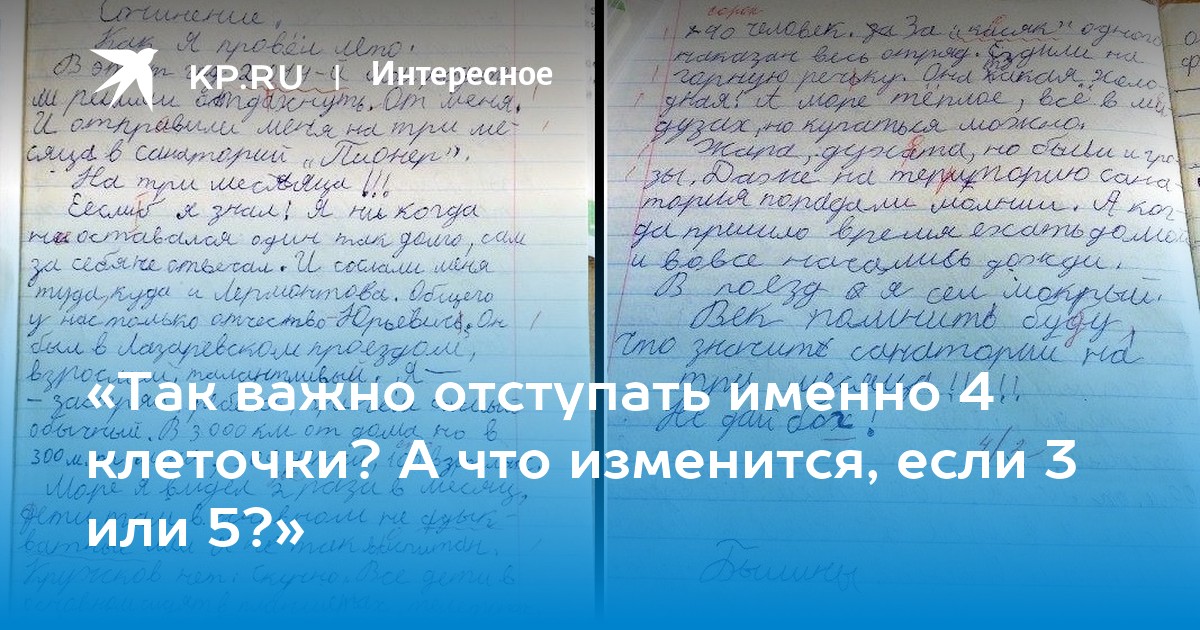 Сочинение.
Как я провёл лето.
В этот
KP.RU | Интересное
ми решили отдахнуть. От меня.
И отправили меня на три ме-
сяца в санаторий „Пионер".
На три месяяца!!!
Еесли б я знал! Я ни когда
не оставался один так долго, сам
за себя не отвечал. И сослали меня
туда, куда и Лермонтова. Общего
у нас только отчество - Юрьевич. Он
был в Лазаревском проездом,
взрослый, талантливый. Я -
обычный. В 3 000 км от дома, но в
300 м
Море я видел 2 раза в месяц,
дети там в основном не адык-
ватные
Кружков нет. Скучно. Все дети в
сорок
40 человек. За „косяк" одного
наказан весь отряд. Ездили на
горную речьку. Она такая холо-
дная! А море тёплое, всё в ме
дузах, но купаться можно.
Жара, духата, но были и гро-
зы. Даже на территорию сана-
тория попадали молнии. А ког-
да пришло время ехать домой
и вовсе начались дожди.
В поезд я сел мокрый.
Век помнить буду,
Что значить санаторий на
три месяца!!!!!
Не дай бог!
4/2
Былины
«Так важно отступать именно 4
клеточки? А что изменится, если 3
или 5?»